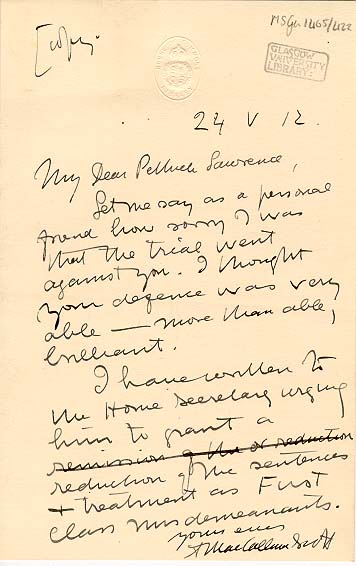 [Copy.
MS Gen 1465/422
GLASGOW
UNIVERSITY
LIBRARY:
24 V 12.
My Dear Pethick Lawrence,
Let me say as a personal
friend how sorry I was
that the trial went
against you. I thought
your defence was very
able — more than able,
brilliant.
I have written to
the Home Secretary urging
him to grant a
remission of the or reduction
reduction of the sentences
+ treatment as First
Class misdemeanants.
Yours ever
A MacCallum Scott